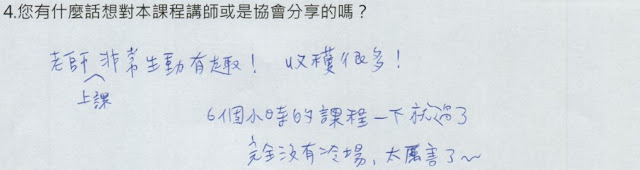 4.您有什麼話想對本課程講師或是協會分享的嗎？
老師上課非常生動有趣！ 收穫很多！
6個小時的課程一下就過了
完全沒有冷場，太厲害了～